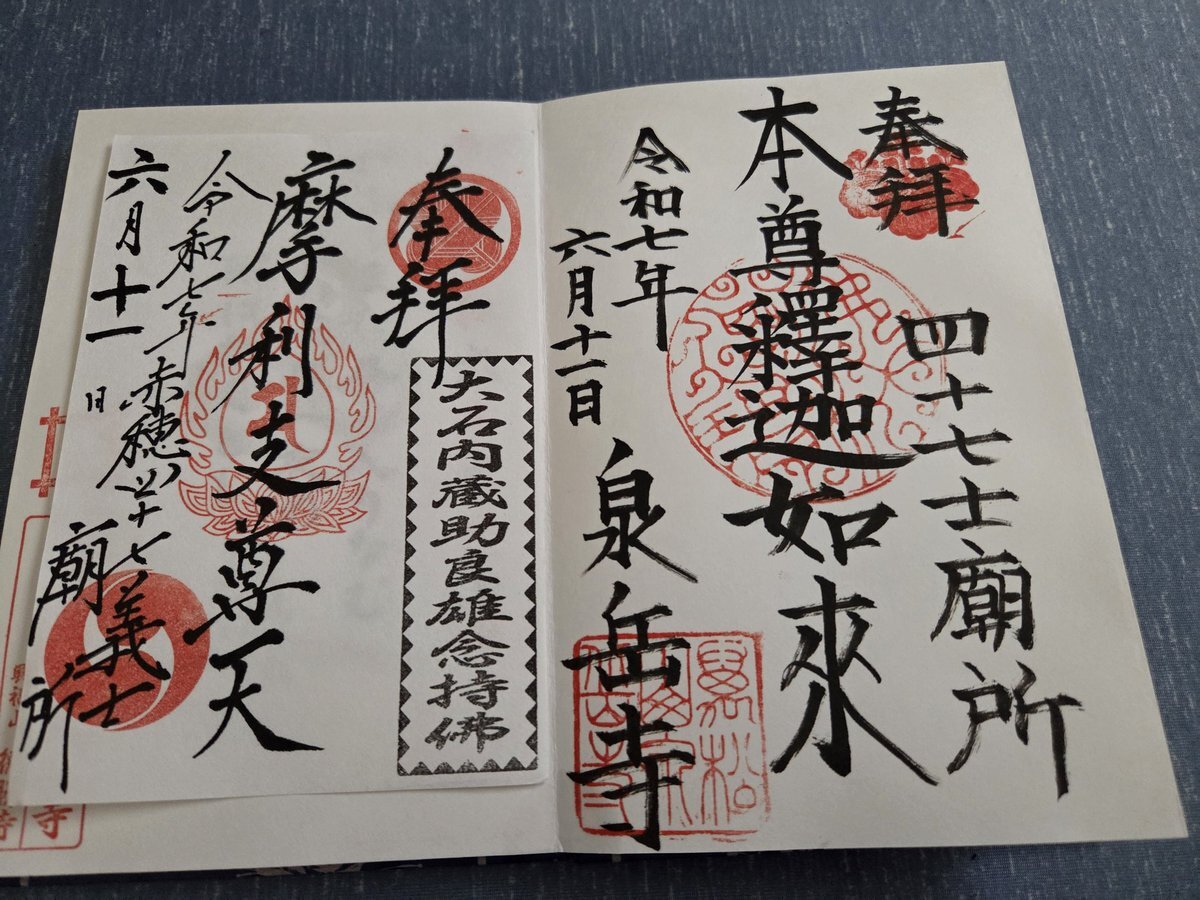 奉拝
四十七士廟所
本尊釋迦如來
令和七年
六月十一日
泉岳寺
奉拝
大石内蔵助良雄念持佛
摩利支尊天
令和七年赤穂四十七義士
六月十一日
廟所
寺